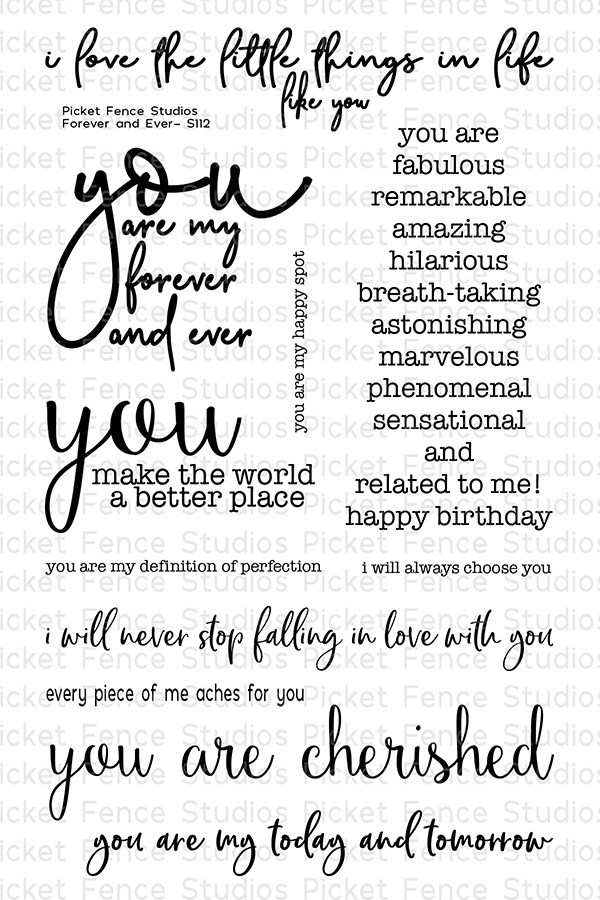 i love the little things in life
like you
Picket Fence Studios
Forever and Ever- S112
you
are my
forever
and ever
you are my happy spot
you are
fabulous
remarkable
amazing
hilarious
breath-taking
astonishing
marvelous
phenomenal
sensational
and
related to me!
happy birthday
you
make the world
a better place
you are my definition of perfection
i will always choose you
i will never stop falling in love with you
every piece of me aches for you
you are cherished
you are my today and tomorrow